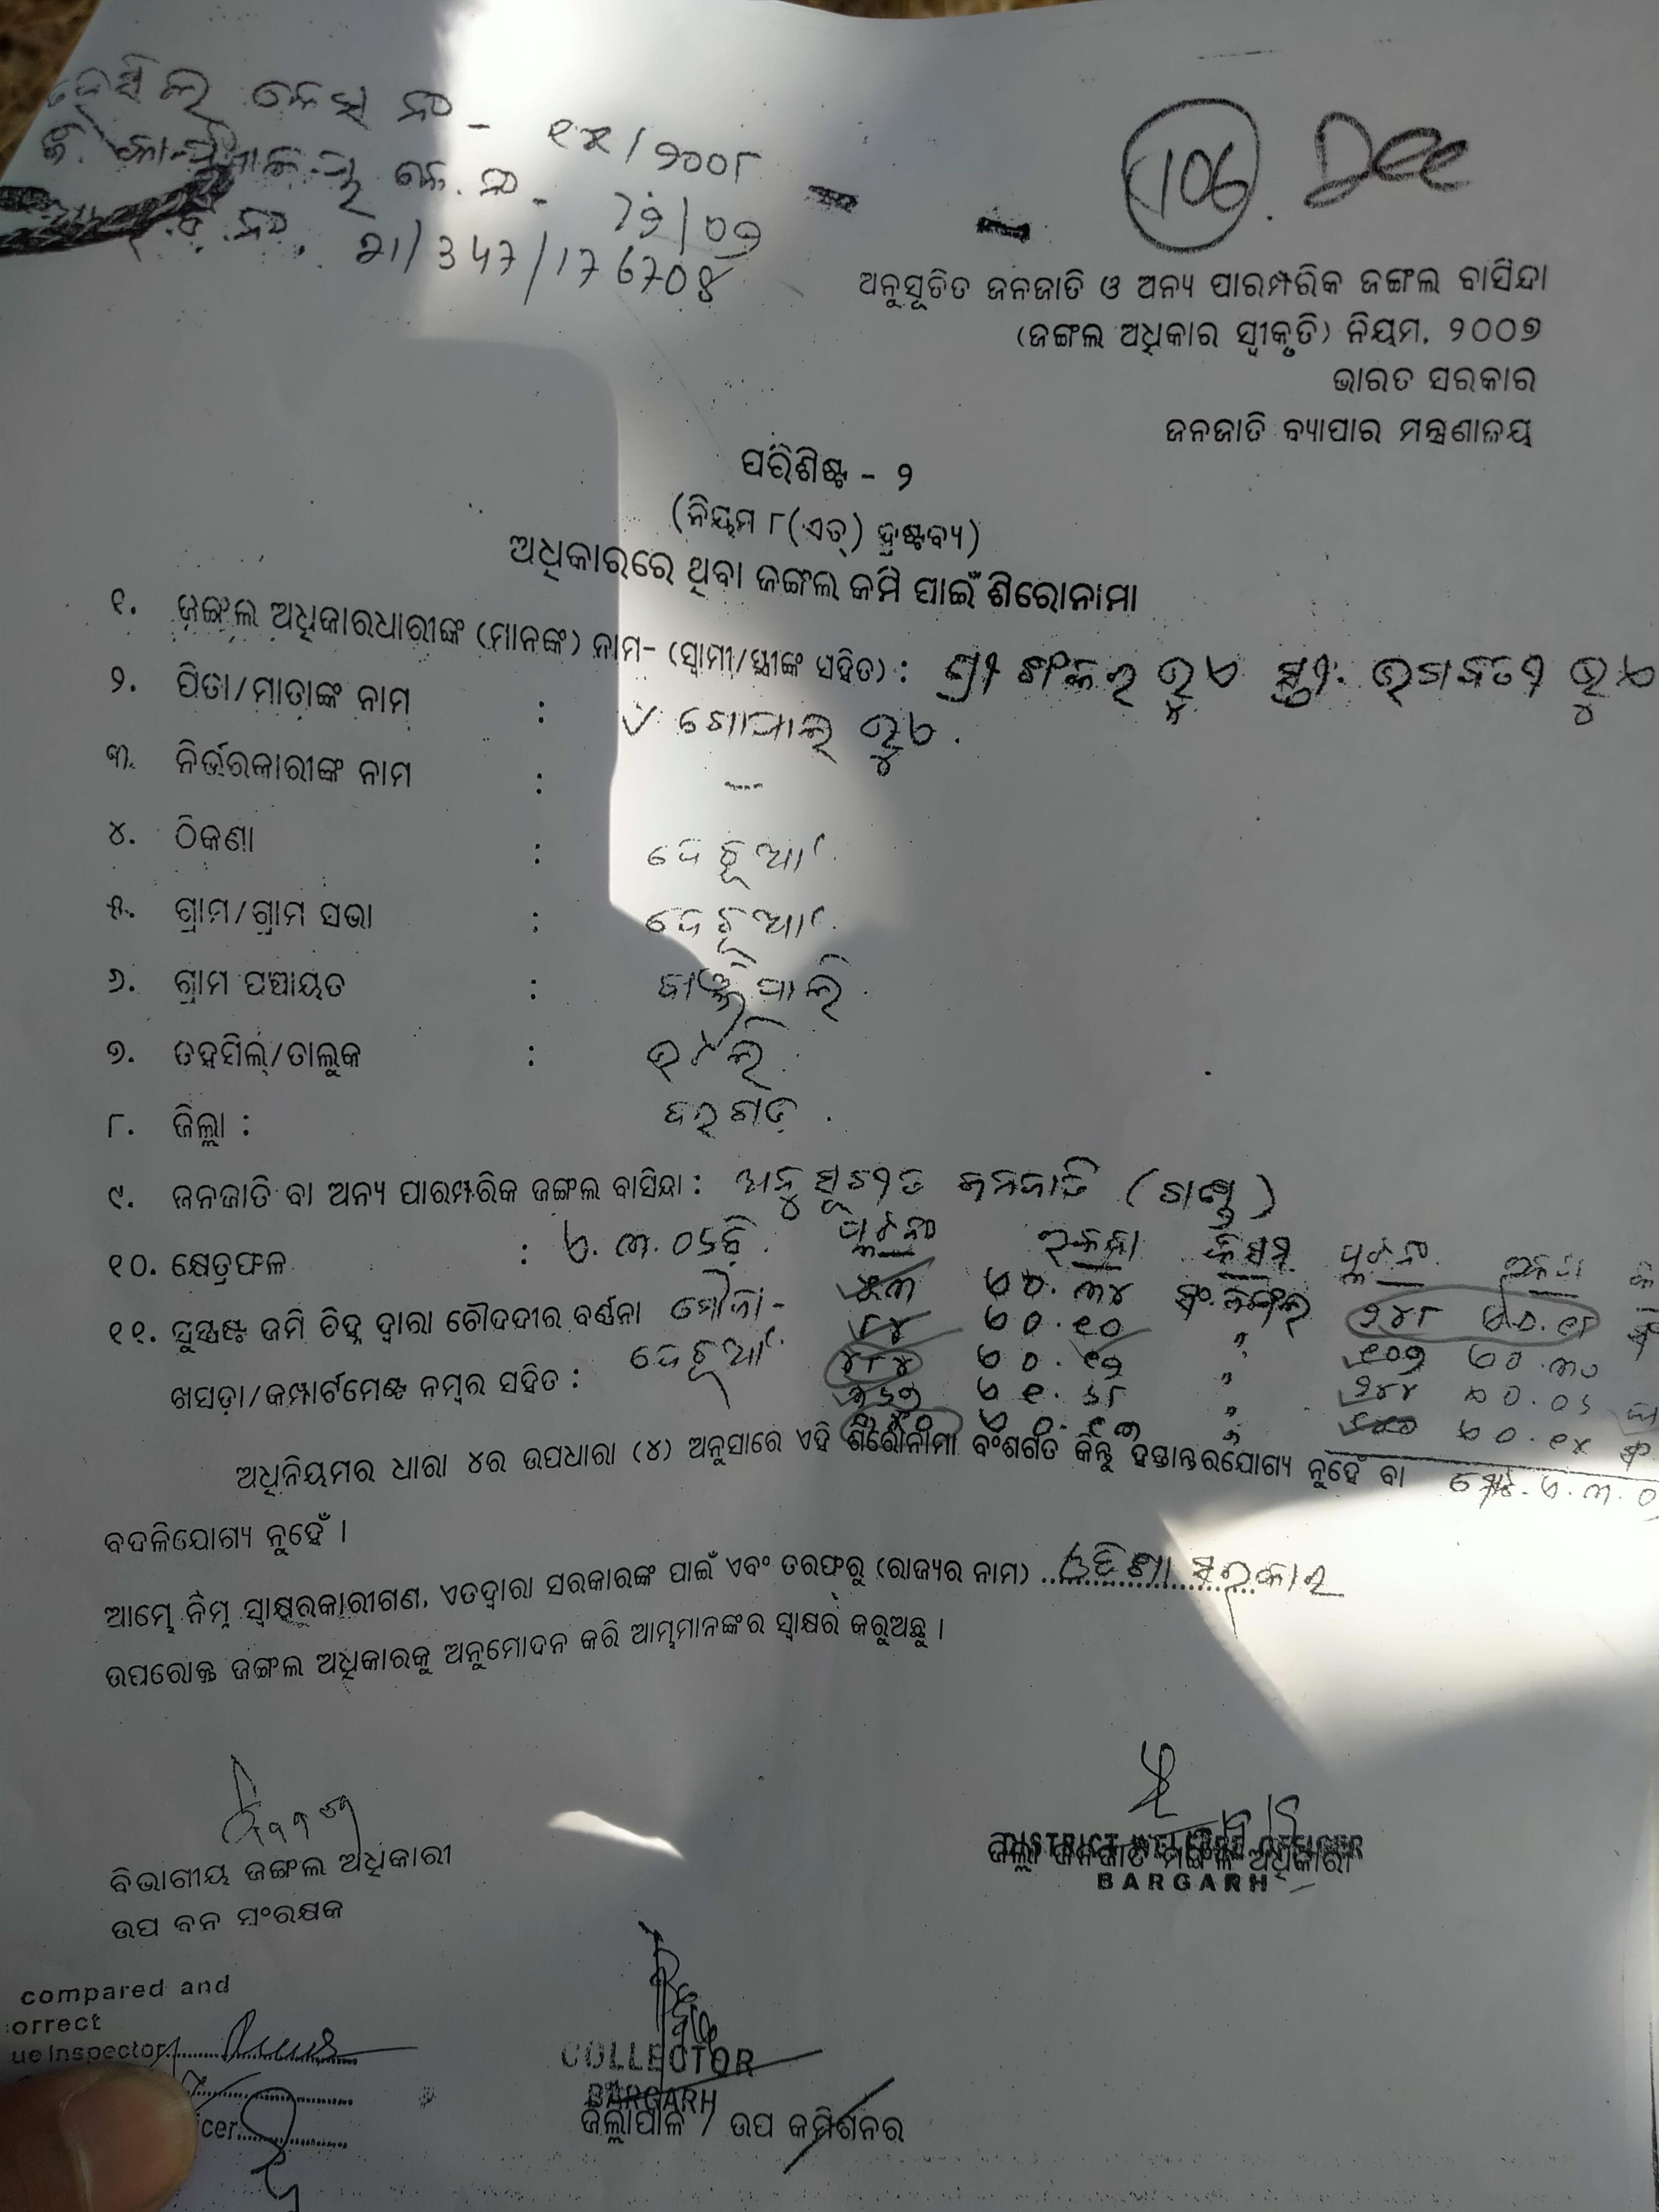 ତହସିଲ କେସ୍ ନଂ - ୧୪/୨୦୦୮
କେ. ନଂ - 79/09
ନଂ. 21/347/176708
106
ଅନୁସୂଚିତ ଜନଜାତି ଓ ଅନ୍ୟ ପାରମ୍ପରିକ ଜଙ୍ଗଲ ବାସିନ୍ଦା
(ଜଙ୍ଗଲ ଅଧିକାର ସ୍ୱୀକୃତି) ନିୟମ, ୨୦୦୭
ଭାରତ ସରକାର
ଜନଜାତି ବ୍ୟାପାର ମନ୍ତ୍ରଣାଳୟ
ପରିଶିଷ୍ଟ - ୨
(ନିୟମ ୮(ଏଚ୍) ଦ୍ରଷ୍ଟବ୍ୟ)
ଅଧିକାରରେ ଥିବା ଜଙ୍ଗଲ ଜମି ପାଇଁ ଶିରୋନାମା
୧. ଜଙ୍ଗଲ ଅଧିକାରଧାରୀଙ୍କ (ମାନଙ୍କ) ନାମ- (ସ୍ୱାମୀ/ସ୍ତ୍ରୀଙ୍କ ସହିତ) : ଶ୍ରୀ ଶଙ୍କର ଭୁଏ ସ୍ତ୍ରୀ. ଭଗବତୀ ଭୁଏ
୨. ପିତା/ମାତାଙ୍କ ନାମ : ଗୋପାଲ ଭୁଏ.
୩. ନିର୍ଭରକାରୀଙ୍କ ନାମ : —
୪. ଠିକଣା : ଦେଚୂଆଁ
୫. ଗ୍ରାମ/ଗ୍ରାମ ସଭା : ଦେଚୂଆଁ
୬. ଗ୍ରାମ ପଞ୍ଚାୟତ :
୭. ତହସିଲ୍/ତାଲୁକ : ଭଟଲି
୮. ଜିଲ୍ଲା : ବରଗଡ଼.
୯. ଜନଜାତି ବା ଅନ୍ୟ ପାରମ୍ପରିକ ଜଙ୍ଗଲ ବାସିନ୍ଦା : ଅନୁସୂଚୀତ ଜନଜାତି (ଗଣ୍ଡ)
୧୦. କ୍ଷେତ୍ରଫଳ : ଏ.୩.୦୬ଡି. ପ୍ଲଟ ନଂ ରକବା କିସମ ପ୍ଲଟ ନଂ ରକବା
୧୧. ସୁସ୍ପଷ୍ଟ ଜମି ଚିହ୍ନ ଦ୍ୱାରା ଚୌଦଦୀର ବର୍ଣ୍ଣନା ମୌଜା - ୫୩ ଏ୦.୩୪ ୨୪୮ ଏ୦.୧୮
୮୪ ଏ୦.୧୦ " ୧୦୭ ଏ୦.୩୦
ଖସଡ଼ା/କମ୍ପାର୍ଟମେଣ୍ଟ ନମ୍ବର ସହିତ : ଦେଚୂଆଁ ୪୮୪ ଏ୦.୧୨ " ୨୪୪ ଏ୦.୦୬
ଏ୧.୬୮ " ଏ୦.୧୪
ଏ୦.୧୩ "
ଅଧିନିୟମର ଧାରା ୪ର ଉପଧାରା (୪) ଅନୁସାରେ ଏହି ଶିରୋନାମା ବଂଶଗତ କିନ୍ତୁ ହସ୍ତାନ୍ତରଯୋଗ୍ୟ ନୁହେଁ ବା
ବଦଳିଯୋଗ୍ୟ ନୁହେଁ ।
ଆମ୍ଭେ ନିମ୍ନ ସ୍ୱାକ୍ଷରକାରୀଗଣ, ଏତଦ୍ୱାରା ସରକାରଙ୍କ ପାଇଁ ଏବଂ ତରଫରୁ (ରାଜ୍ୟର ନାମ) ଓଡ଼ିଶା ସରକାର
ଉପରୋକ୍ତ ଜଙ୍ଗଲ ଅଧିକାରକୁ ଅନୁମୋଦନ କରି ଆମ୍ଭମାନଙ୍କର ସ୍ୱାକ୍ଷର କରୁଅଛୁ ।
ବିଭାଗୀୟ ଜଙ୍ଗଲ ଅଧିକାରୀ
ଉପ ବନ ସଂରକ୍ଷକ
DISTRICT WELFARE OFFICER
ଜିଲ୍ଲା ଜନଜାତି ମଙ୍ଗଳ ଅଧିକାରୀ
BARGARH
compared and
orrect
ue Inspector
icer
COLLECTOR
BARGARH
ଜିଲ୍ଲାପାଳ / ଉପ କମିଶନର